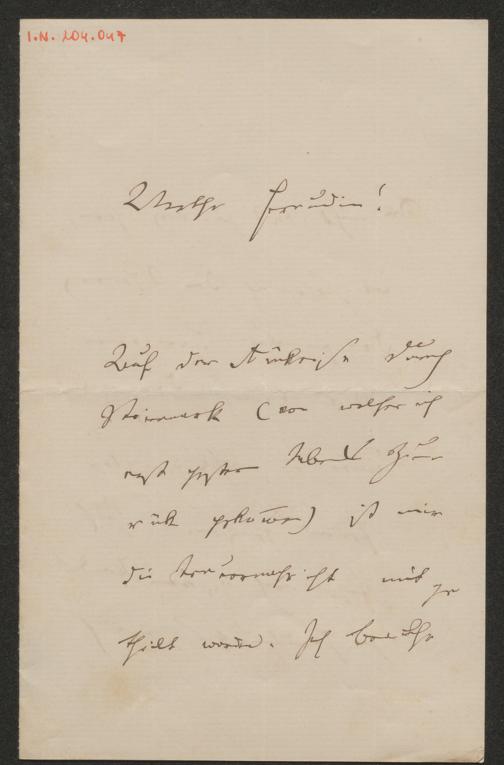 I.N. 204.047
Werthe Freundin!
Auf der Rückreise durch
Steiermark (von welcher ich
erst gestern Abend zu-
rük gekom̅en) ist mir
die Trauernachricht mit ge
theilt worden. Ich